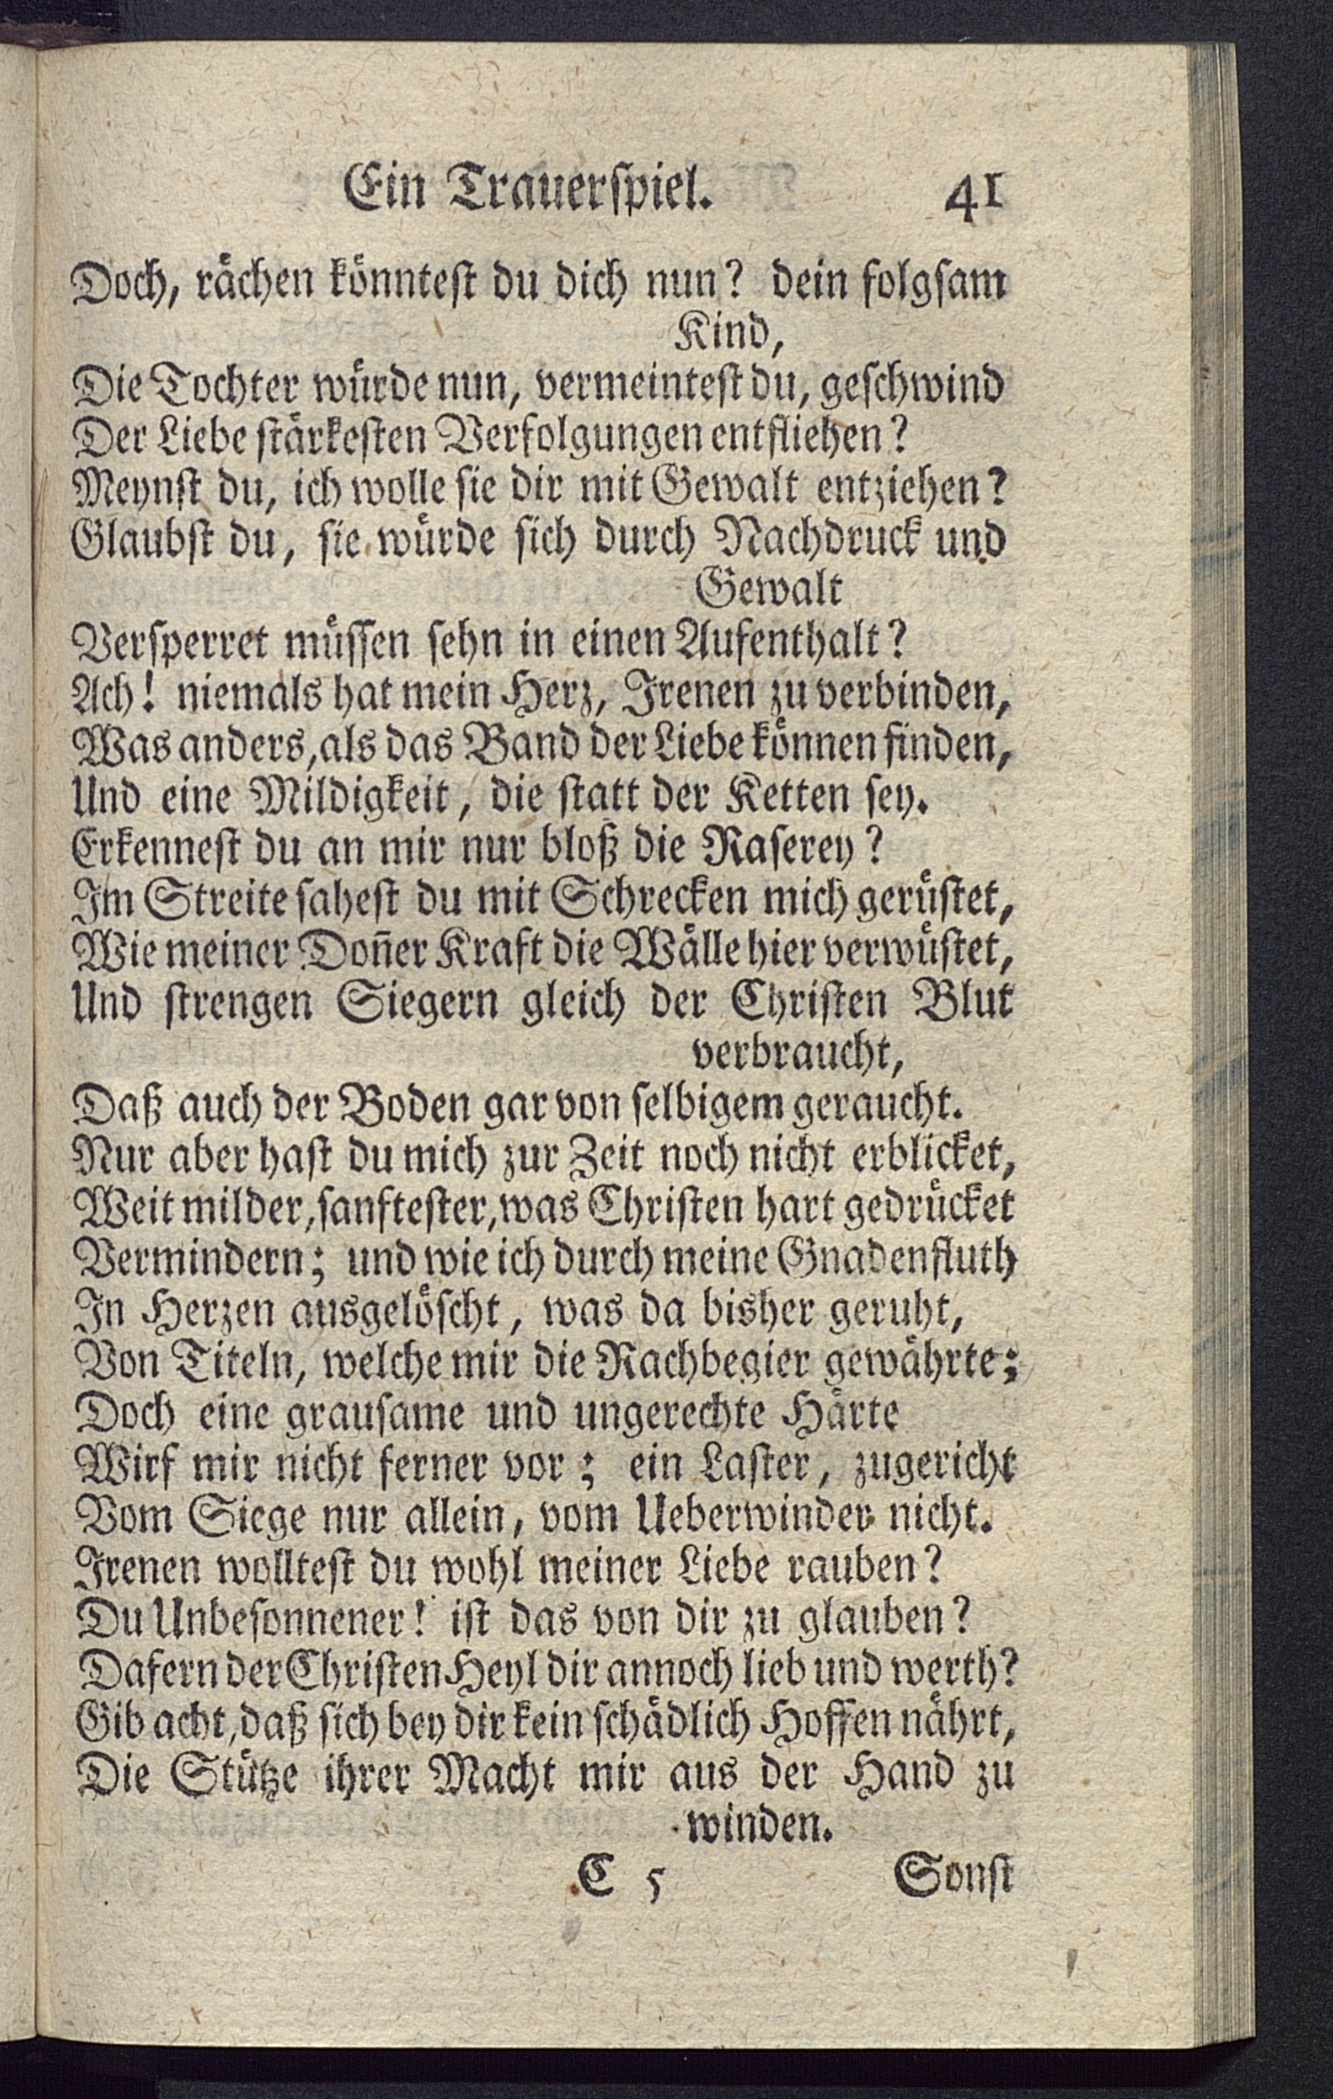 Ein Trauerspiel. 41
Doch, rächen könntest du dich nun? dein folgsam
Kind,
Die Tochter würde nun, vermeintest du, geschwind
Der Liebe stärkesten Verfolgungen entfliehen?
Meynst du, ich wolle sie dir mit Gewalt entziehen?
Glaubst du, sie würde sich durch Nachdruck und
Gewalt
Versperret müssen sehn in einen Aufenthalt?
Ach! niemals hat mein Herz, Irenen zu verbinden,
Was anders, als das Band der Liebe können finden,
Und eine Mildigkeit, die statt der Ketten sey.
Erkennest du an mir nur bloß die Raserey?
Im Streite sahest du mit Schrecken mich gerüstet,
Wie meiner Doñer Kraft die Wälle hier verwüstet,
Und strengen Siegern gleich der Christen Blut
verbraucht,
Daß auch der Boden gar von selbigem geraucht.
Nur aber hast du mich zur Zeit noch nicht erblicket,
Weit milder, sanftester, was Christen hart gedrücket
Vermindern; und wie ich durch meine Gnadenfluth
In Herzen ausgelöscht, was da bisher geruht,
Von Titeln, welche mir die Rachbegier gewährte;
Doch eine grausame und ungerechte Härte
Wirf mir nicht ferner vor; ein Laster, zugericht
Vom Siege nur allein, vom Ueberwinder nicht.
Irenen wolltest du wohl meiner Liebe rauben?
Du Unbesonnener! ist das von dir zu glauben?
Dafern der Christen Heyl dir annoch lieb und werth?
Gib acht, daß sich bey dir kein schädlich Hoffen nährt,
Die Stütze ihrer Macht mir aus der Hand zu
winden.
C 5 Sonst